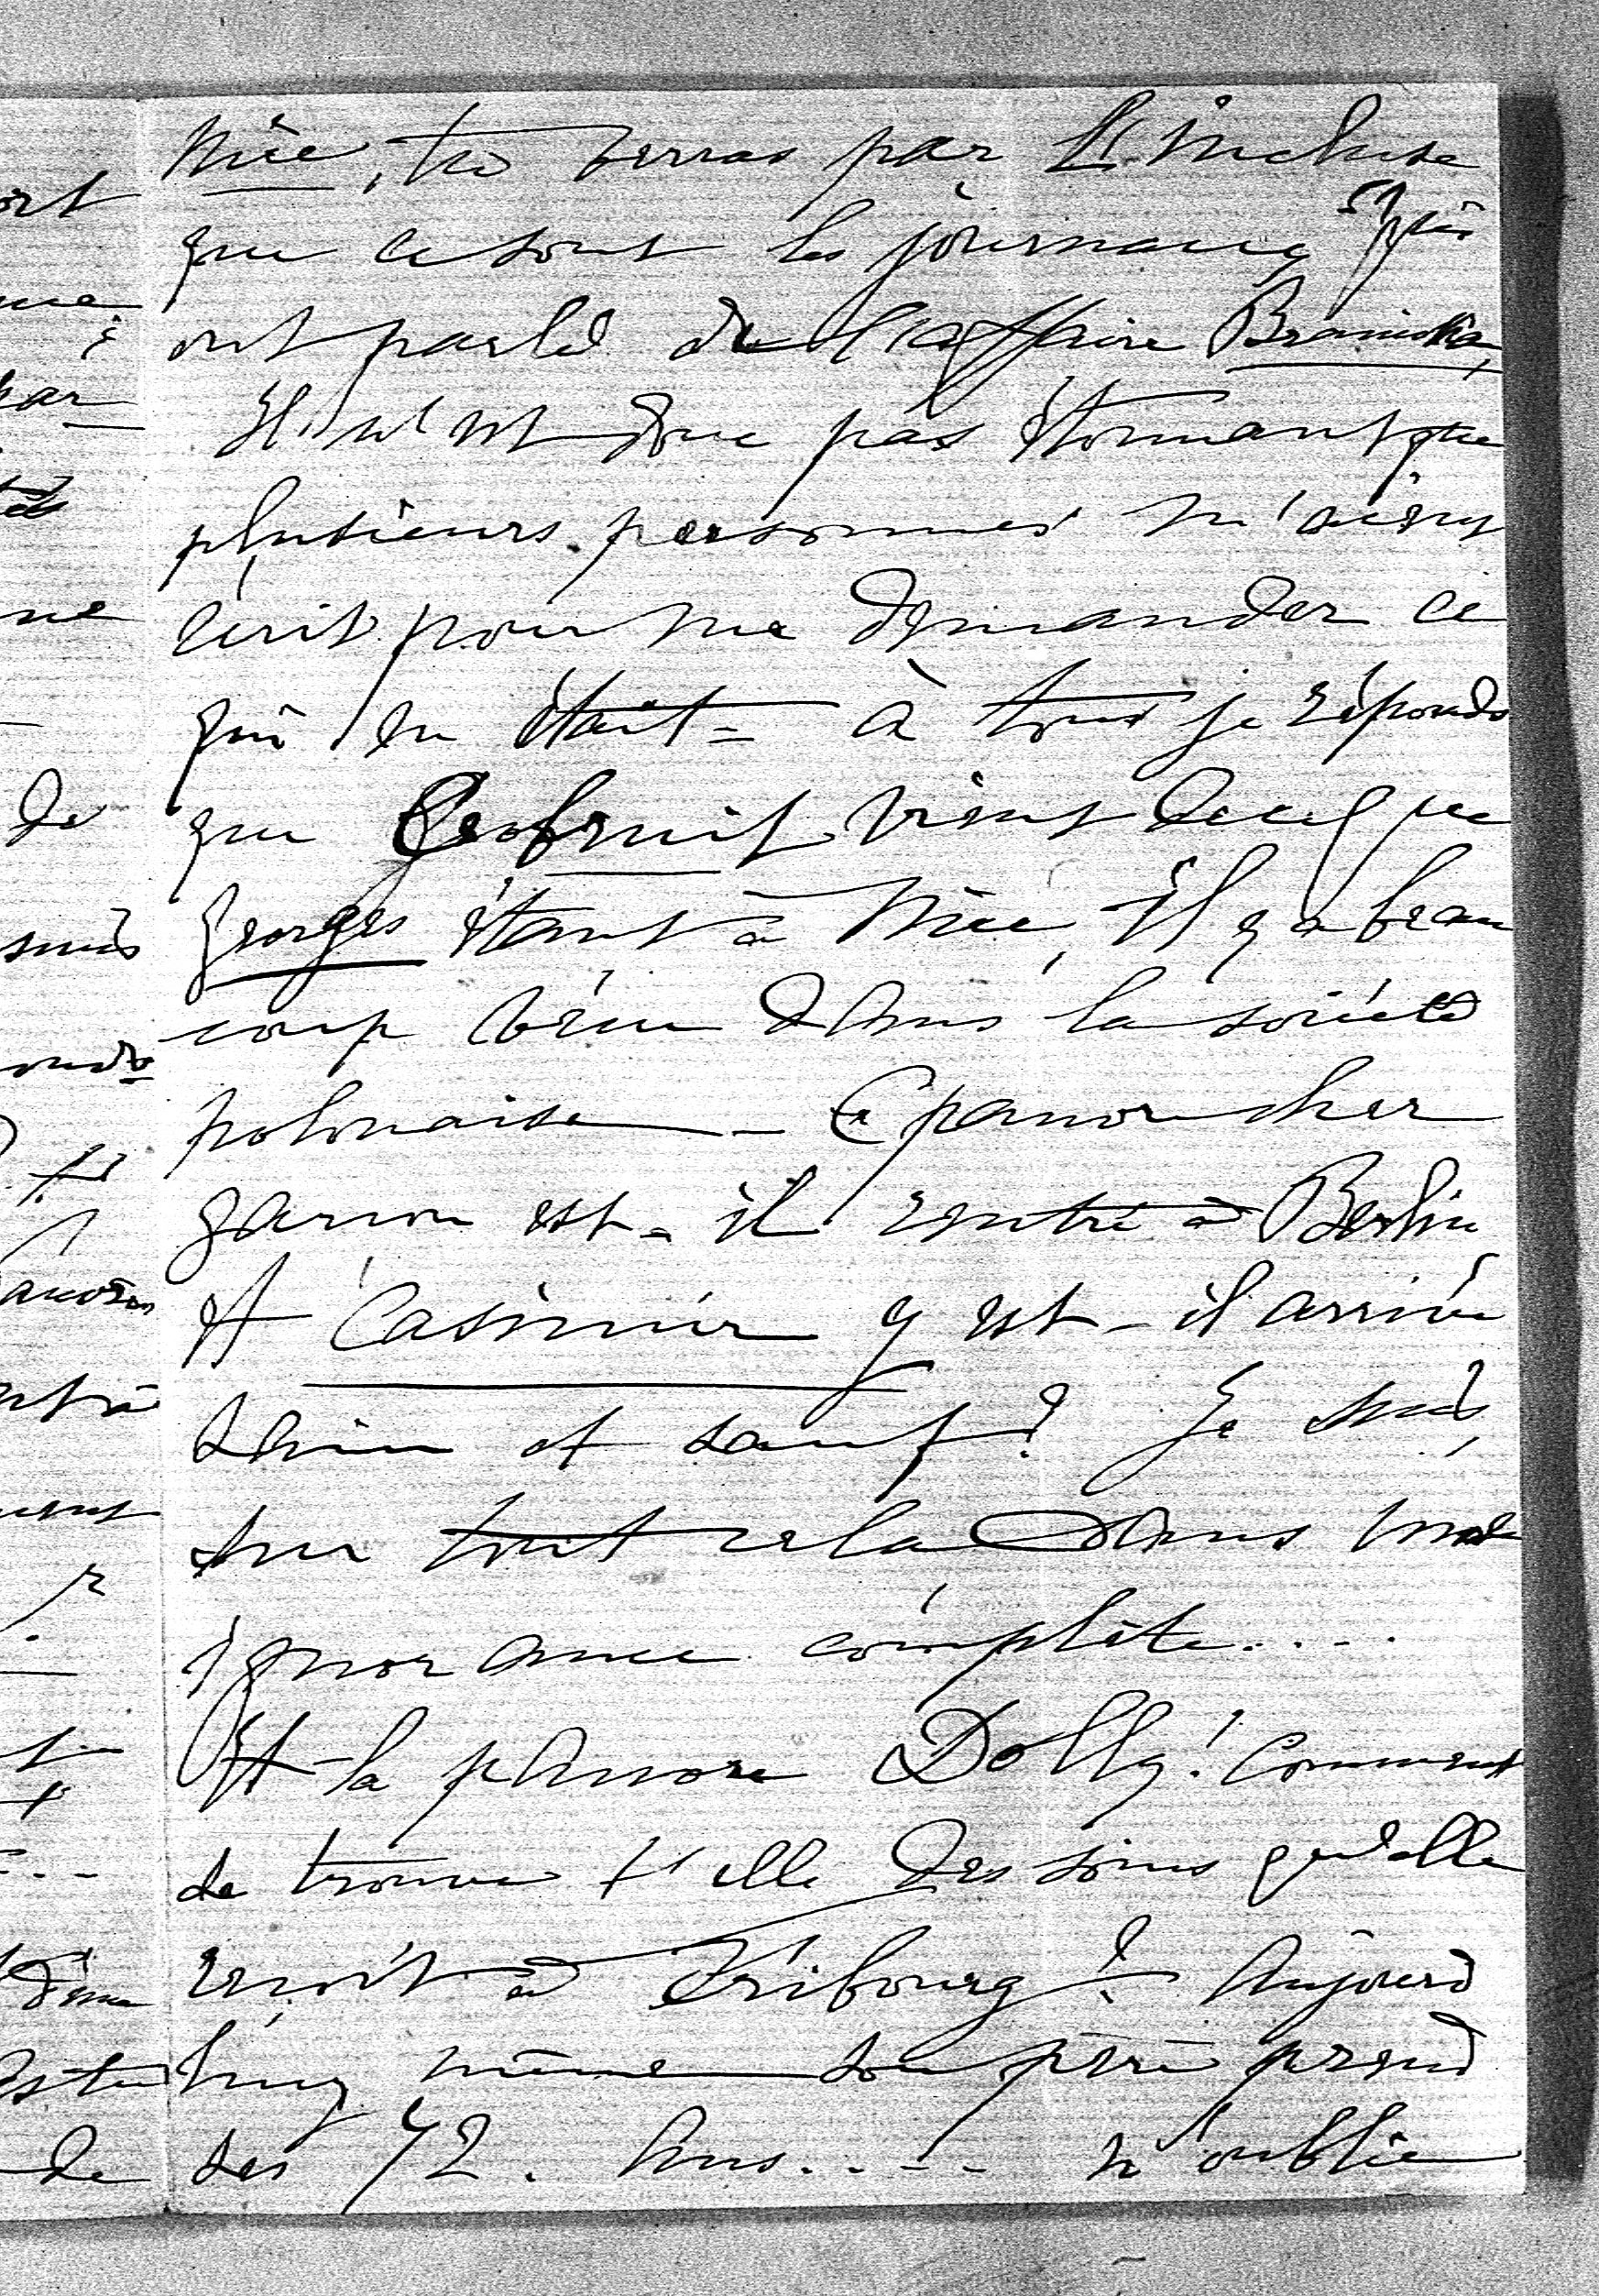 Nice, tu verras par L'incluse
que ce sont les journaux qui
ont parlé de l'affaire Braniska,
Il n'est donc pas étonnant que
plusieurs personnes m'aient
écrit pour me demander ce
qui en était = à tous je réponds
que ce bruit vient de ce que
Georges étant à Nice, il y a beau
coup vécu dans la société
polonaise — Ce pauvre cher
garçon est-il rentré à Berlin
et Casimir y est-il arrivé
sain et sauf? Je suis,
sur tout cela dans une
ignorance complète....
Et la pauvre Dolly! Comment
se trouve t'elle des soins qu'elle
reçoit à Fribourg? Aujourd
huy même son père prend
ses 72. Ans.... n'oublie